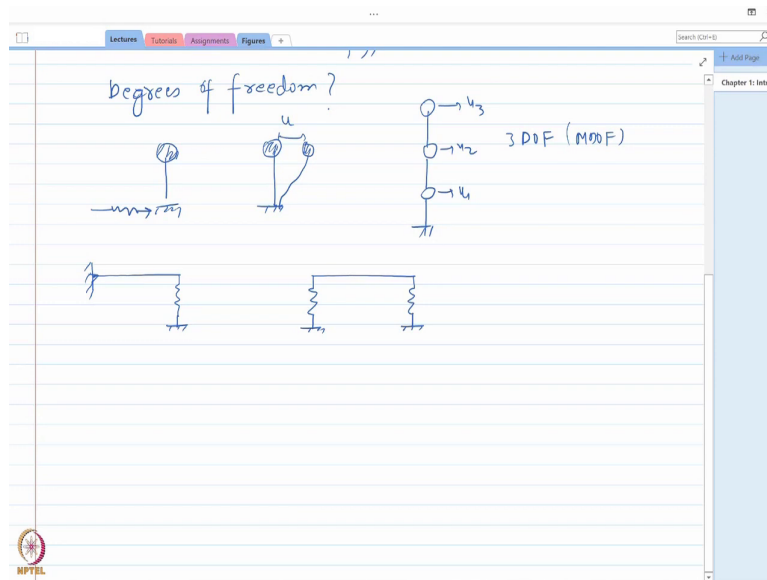 ...
Lectures Tutorials Assignments Figures +
Search (Ctrl+E)
+ Add Page
Chapter 1: Int
Degrees of freedom?
u
m
m
u3
u2
u1
3 DOF (MDOF)
NPTEL